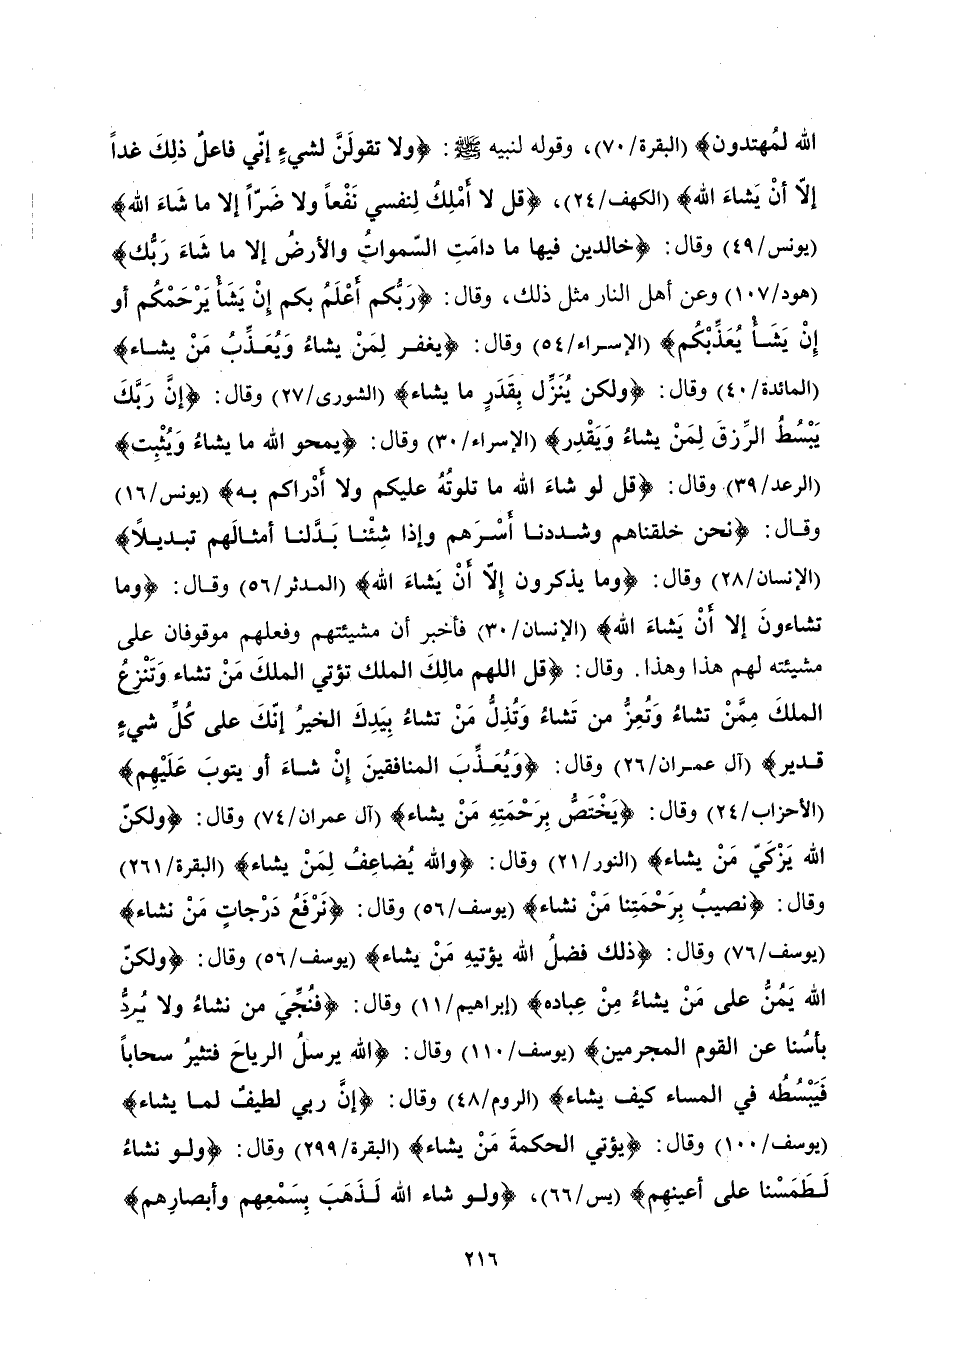 الله لمُهتدون﴾ (البقرة/٧٠)، وقوله لنبيه ﷺ : ﴿ولا تقولَنَّ لشيءٍ إنّي فاعلٌ ذلِكَ غداً
إلّا أنْ يَشاءَ الله﴾ (الكهف/٢٤)، ﴿قل لا أَمْلِكُ لِنفسي نَفْعاً ولا ضَرّاً إلا ما شَاءَ الله﴾
(يونس/٤٩) وقال: ﴿خالدين فيها ما دامَتِ السّمواتُ والأرضُ إلا ما شَاءَ رَبُّك﴾
(هود/١٠٧) وعن أهل النار مثل ذلك، وقال: ﴿رَبُّكم أَعْلَمُ بكم إنْ يَشَأْ يَرْحَمْكُم أو
إنْ يَشَـأْ يُعَذِّبْكُم﴾ (الإسراء/٥٤) وقال: ﴿يغفـر لِمَنْ يشاءُ وَيُعَـذِّبُ مَنْ يشـاء﴾
(المائدة/٤٠) وقال: ﴿ولكن يُنَزِّل بِقَدَرٍ ما يشاء﴾ (الشورى/٢٧) وقال: ﴿إنَّ رَبَّكَ
يَبْسُطُ الرِّزقَ لِمَنْ يشاءُ وَيَقْدِر﴾ (الإسراء/٣٠) وقال: ﴿يمحو الله ما يشاءُ وَيُثْبِت﴾
(الرعد/٣٩) وقال: ﴿قل لو شاءَ الله ما تلوتُهُ عليكم ولا أَدْراكم بـه﴾ (يونس/١٦)
وقـال: ﴿نحن خلقناهم وشـددنـا أَسْـرَهم وإذا شِئْنـا بَـدَّلنـا أمثـالَهم تبـديـلاً﴾
(الإنسان/٢٨) وقال: ﴿وما يذكرون إلّا أَنْ يَشاءَ الله﴾ (المـدثر/٥٦) وقـال: ﴿وما
تشاءونَ إلا أَنْ يَشاءَ الله﴾ (الإنسان/٣٠) فأخبر أن مشيئتهم وفعلهم موقوفان على
مشيئته لهم هذا وهذا. وقال: ﴿قل اللهم مالِكَ الملك تؤتي الملكَ مَنْ تشاء وَتَنْزِعُ
الملكَ مِمَّنْ تشاءُ وَتُعِزُّ من تَشاءُ وَتُذِلُّ مَنْ تشاءُ بِيَدِكَ الخيرُ إنّكَ على كُلِّ شيءٍ
قـدير﴾ (آل عمـران/٢٦) وقال: ﴿وَيُعَـذِّبَ المنافقينَ إنْ شـاءَ أو يتوبَ عَلَيْهِم﴾
(الأحزاب/٢٤) وقال: ﴿يَخْتَصُّ بِرَحْمَتِهِ مَنْ يشاء﴾ (آل عمران/٧٤) وقال: ﴿ولكنّ
الله يَزْكَيّ مَنْ يشاء﴾ (النور/٢١) وقال: ﴿والله يُضاعِفُ لِمَنْ يشاء﴾ (البقرة/٢٦١)
وقال: ﴿نصيبُ بِرَحْمَتِنا مَنْ نشاء﴾ (يوسف/٥٦) وقال: ﴿نَرْفَعُ دَرْجاتٍ مَنْ نشاء﴾
(يوسف/٧٦) وقال: ﴿ذلك فضلُ الله يؤتيهِ مَنْ يشاء﴾ (يوسف/٥٦) وقال: ﴿ولكنّ
الله يَمُنُّ على مَنْ يشاءُ مِنْ عِباده﴾ (إبراهيم/١١) وقال: ﴿فنُجِّيَ من نشاءُ ولا يُردُّ
بأسُنا عن القوم المجرمين﴾ (يوسف/١١٠) وقال: ﴿الله يرسلُ الرياحَ فتثيرُ سحاباً
فَيَبْسُطُه في المساء كيف يشاء﴾ (الروم/٤٨) وقال: ﴿إنَّ ربي لطيفٌ لمـا يشاء﴾
(يوسف/١٠٠) وقال: ﴿يؤتي الحكمةَ مَنْ يشاء﴾ (البقرة/٢٩٩) وقال: ﴿ولـو نشاءُ
لَـطَمَسْنا على أعينهِم﴾ (يس/٦٦)، ﴿ولـو شاء الله لَـذَهَبَ بِسَمْعِهم وأبصارِهم﴾
٢١٦